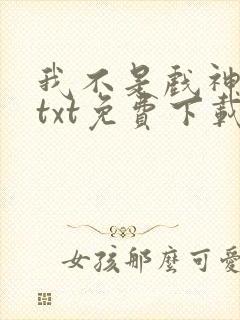 我不是戲神
txt免費下載
女孩那麼可愛